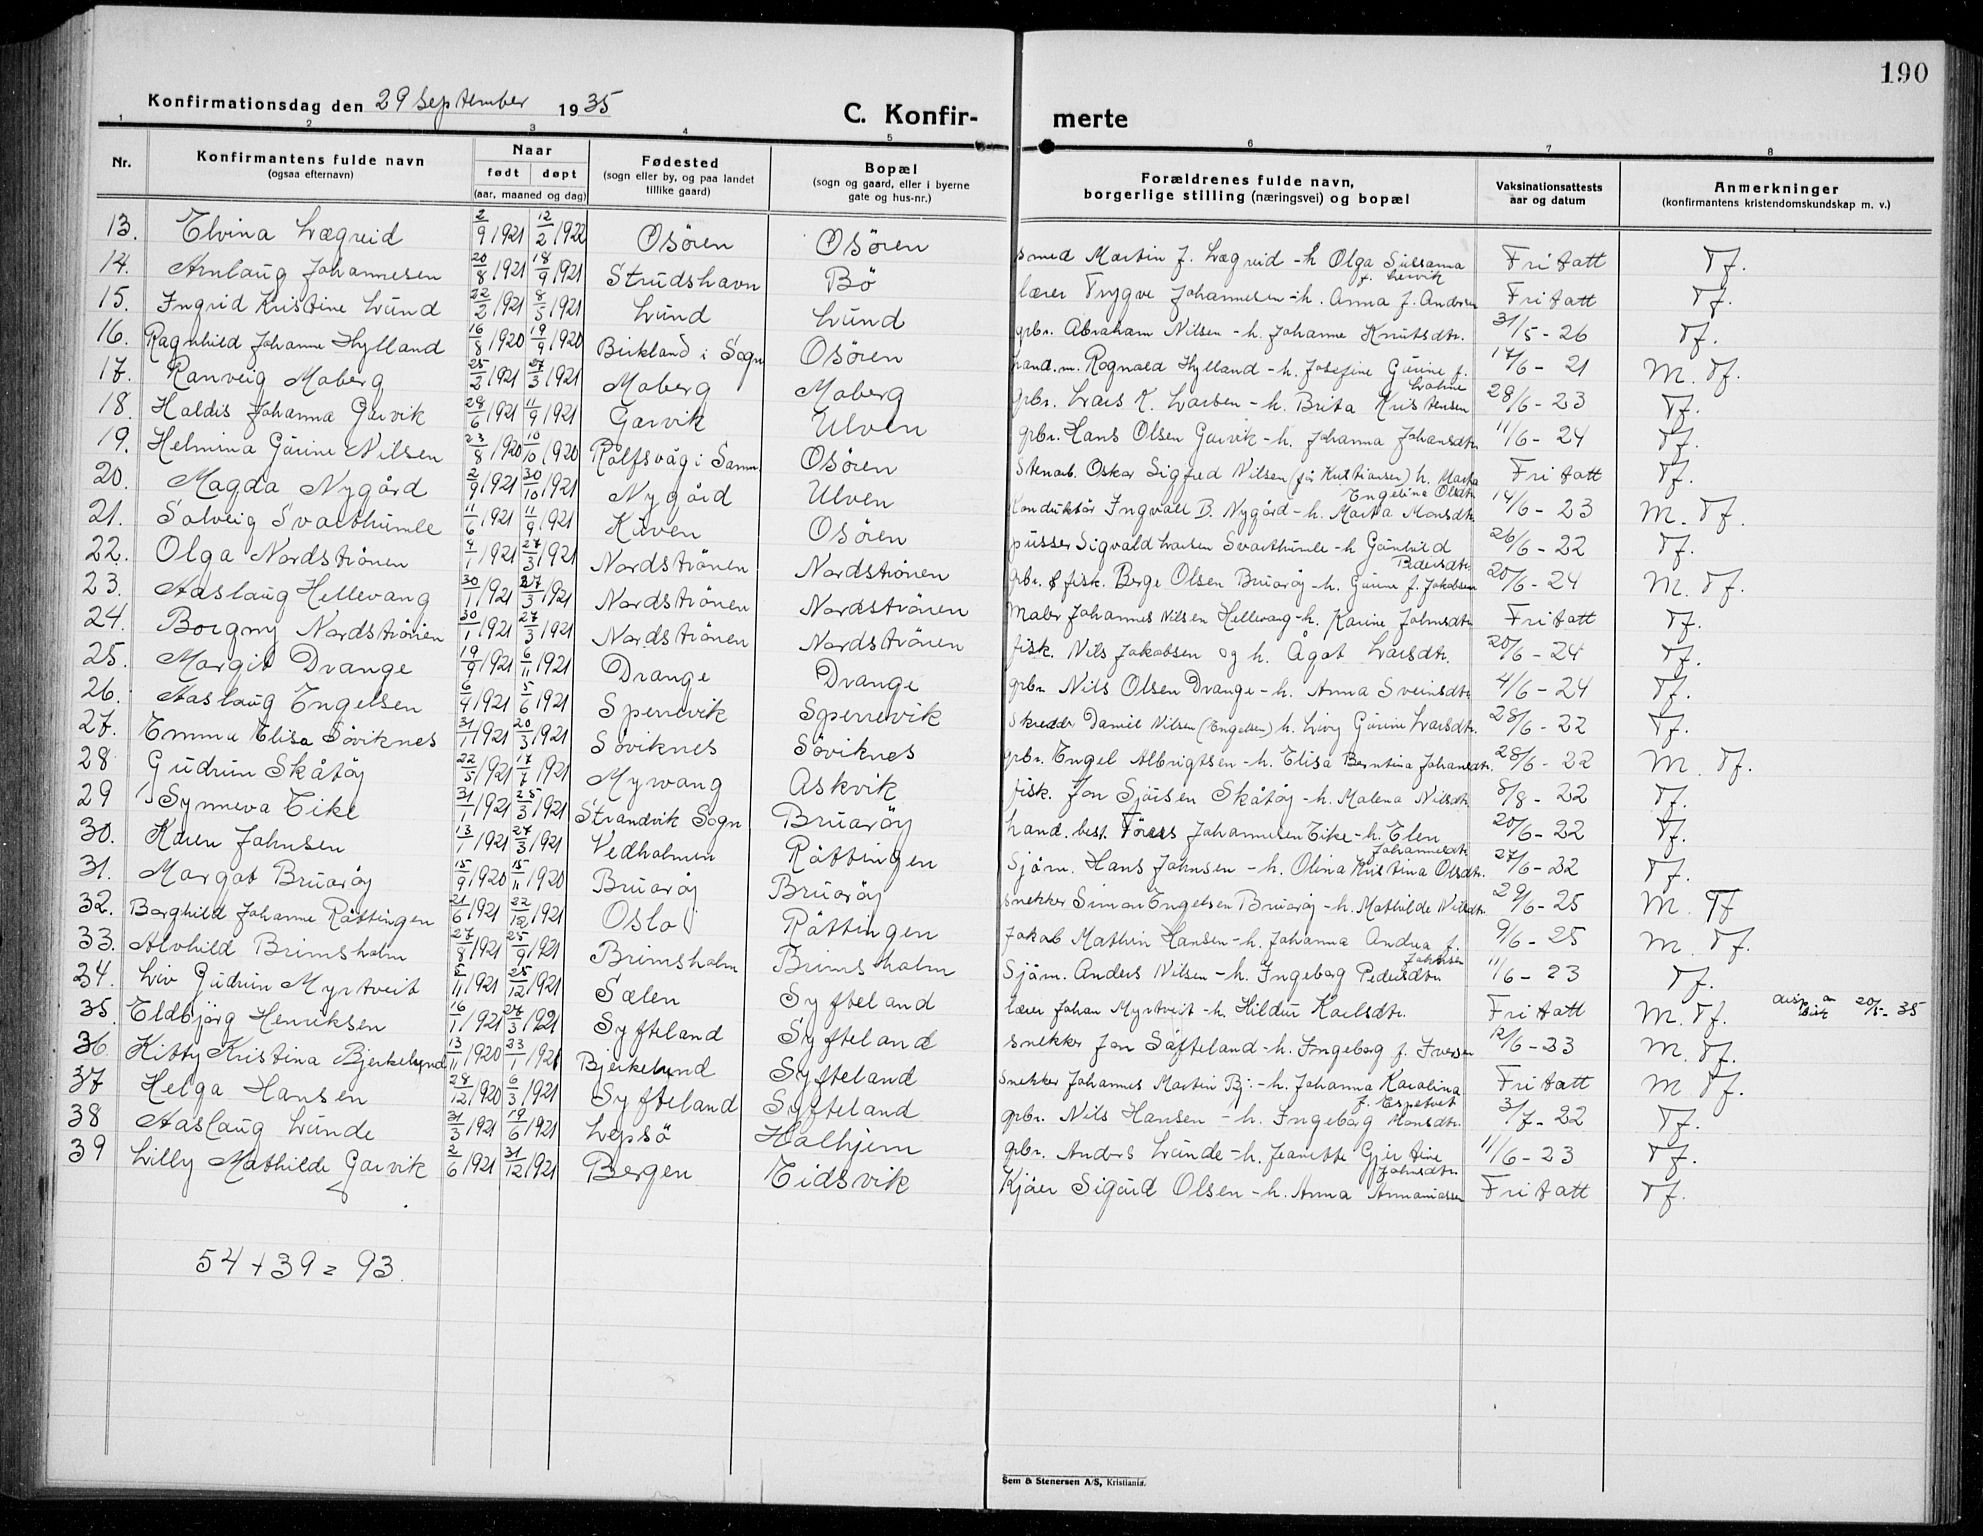 190
Konfirmationsdag den 29 september 1935
C. Konfir- merte
1 2 3 4 5 6 7 8
Nr. Konfirmantens fulde navn (ogsaa efternavn) Naar født døpt (aar, maaned og dag) Fødested (sogn eller by, og paa landet tillike gaard) Bopæl (sogn og gaard, eller i byerne gate og hus-nr.) Forældrenes fulde navn, borgerlige stilling (næringsvei) og bopæl Vaksinationsattests aar og datum Anmerkninger (konfirmantens kristendomskundskap m. v.)
13. Elvina Lægreid 2/9 1921 12/2 1922 Osören Osören smed Martin J. Lægreid - h Olga Sulsanna f. Leivik Fritatt Tf.
14. Arnlaug Johannesen 20/8 1921 18/9 1921 Strudshavn Bö lærer Trygve Johannesen - h. Anna f. Andersen Fritatt Tf.
15. Ingrid Kristine Lund 22/2 1921 8/5 1921 Lund Lund grbr. Abraham Nilsen - h. Johanne Knutsdtr. 31/5 - 26 Tf.
16. Ragnhild Johanne Hylland 16/8 1920 19/9 1920 Birkland i Sogn Osören hand.m. Rognald Hylland - h. Josefine Gurine f. 17/6 - 21 M. Tf.
17. Ranveig Moberg 25/2 1921 27/3 1921 Moberg Moberg grbr. Lars K. Larsen - h. Brita Kristensen 28/6 - 23 Tf.
18. Haldis Johanna Garvik 28/6 1921 11/9 1921 Garvik Ulven grbr. Hans Olsen Garvik - h. Johanna Johansdtr. 11/6 - 24 Tf.
19. Helmina Gurine Nilsen 23/8 1920 10/10 1920 Rolfsvåg i Samn. Osören Stenarb. Oskar Sigfred Nilsen (för Kristiansen) h. Marta Engelina Olsdtr Fritatt Tf.
20. Magda Nygård 2/9 1921 30/10 1921 Nygård Ulven Konduktör Ingvald B. Nygård - h. Marta Monsdtr. 14/6 - 23 M. Tf.
21. Solveig Svarthumle 11/6 1921 11/9 1921 Kuven Osören pusser Sigvald Larsen Svarthumle - h Gunhild Pedersdtr 26/6 - 22 Tf.
22. Olga Nordströnen 9/1 1921 27/3 1921 Nordströnen Nordströnen grbr. & fisk. Berge Olsen Bruaröy - h. Gurine f. Jakobsen 20/6 - 24 M. Tf.
23. Aaslaug Hellevang 30/1 1921 27/3 1921 Nordströnen Nordströnen Maler Johannes Nilsen Hellevang - h. Karine Johnsdtr Fritatt Tf.
24. Borgny Nordströnen 30/1 1921 27/3 1921 Nordströnen Nordströnen fisk. Nils Jakobsen og h. Ågot Larsdtr. 20/6 - 24 Tf.
25. Margit Drange 19/9 1921 6/11 1921 Drange Drange grbr. Nils Olsen Drange - h. Anna Sveinsdtr 4/6 - 24 Tf.
26. Aaslaug Engelsen 6/4 1921 5/6 1921 Sperrevik Sperrevik Skredder Daniel Nilsen (Engelsen) h. Livy Gurine Larsdtr. 28/6 - 22 Tf.
27. Emma Elisa Söviknes 31/1 1921 20/3 1921 Söviknes Söviknes grbr. Engel Albrigtsen - h. Elisa Berntina Johansdtr. 28/6 - 22 M. Tf.
28 Gudrun Skåtöy 22/5 1921 17/7 1921 Myrvang Askvik fisk. Jon Sjursen Skåtöy - h. Malena Nilsdtr 8/8 - 22 Tf.
29 Synneva Eike 31/1 1921 25/3 1921 Strandvik Sogn Bruaröy hand. best. Johannesen Eike - h. Elen Johannesdtr 20/6 - 22 Tf.
30. Karen Johnsen 13/1 1921 27/3 1921 Vedholmen Röttingen Sjöm. Hans Johnsen - h. Olina Kristina Olsdtr. 27/6 - 32 Tf.
31. Margot Bruaröy 15/9 1920 15/11 1920 Bruaröy Bruaröy snekker Simon Engelsen Bruaröy - h. Mathilde Nilsdtr. 29/6 - 25 M. Tf
32. Borghild Johanne Röttingen 21/6 1921 22/12 1921 Oslo Röttingen Jakob Mathin Hansen - h. Johanna Andrea f. Johnsen 9/6 - 25 M. Tf.
33. Alvhild Brimsholm 27/8 1921 25/9 1921 Brimsholm Brimsholm Sjöm. Anders Nilsen - h. Ingeborg Pedersdtr 11/6 - 23 Tf.
34. Liv Gudrun Myrtveit 5/11 1921 25/12 1921 Sælen Syfteland lærer Johan Myrtveit - h. Hildur Karlsdtr. Fritatt M. Tf. disp av Bisk 20/5 - 35
35. Eldbjörg Henriksen 16/1 1921 27/3 1921 Syfteland Syfteland snekker Jon Söfteland - h. Ingeborg f. Iversen 12/6 - 33 M. Tf.
36 Kitty Kristina Bjerkelund 13/11 1920 23/1 1921 Bjerkelund Syfteland Snekker Johannes Martin Bj: - h. Johanna Karolina f. Espetvet Fritatt M Tf.
37 Helga Hansen 28/12 1920 6/3 1921 Syfteland Syfteland grbr. Nils Hansen - h. Ingeborg Monsdtr. 3/7 - 22 Tf.
38 Aaslaug Lunde 31/3 1921 19/6 1921 Lepsö Halhjem grbr. Anders Lunde - h. Jeanette Gjertine Johnsdtr. 11/6 - 23 Tf.
39 Lilly Mathilde Garvik 2/6 1921 31/12 1921 Bergen Eidsvik Kjörer Sigurd Olsen - h. Anna Annaniassen Fritatt Tf.
54 + 39 = 93.
Sem & Stenersen A/S, Kristiania.